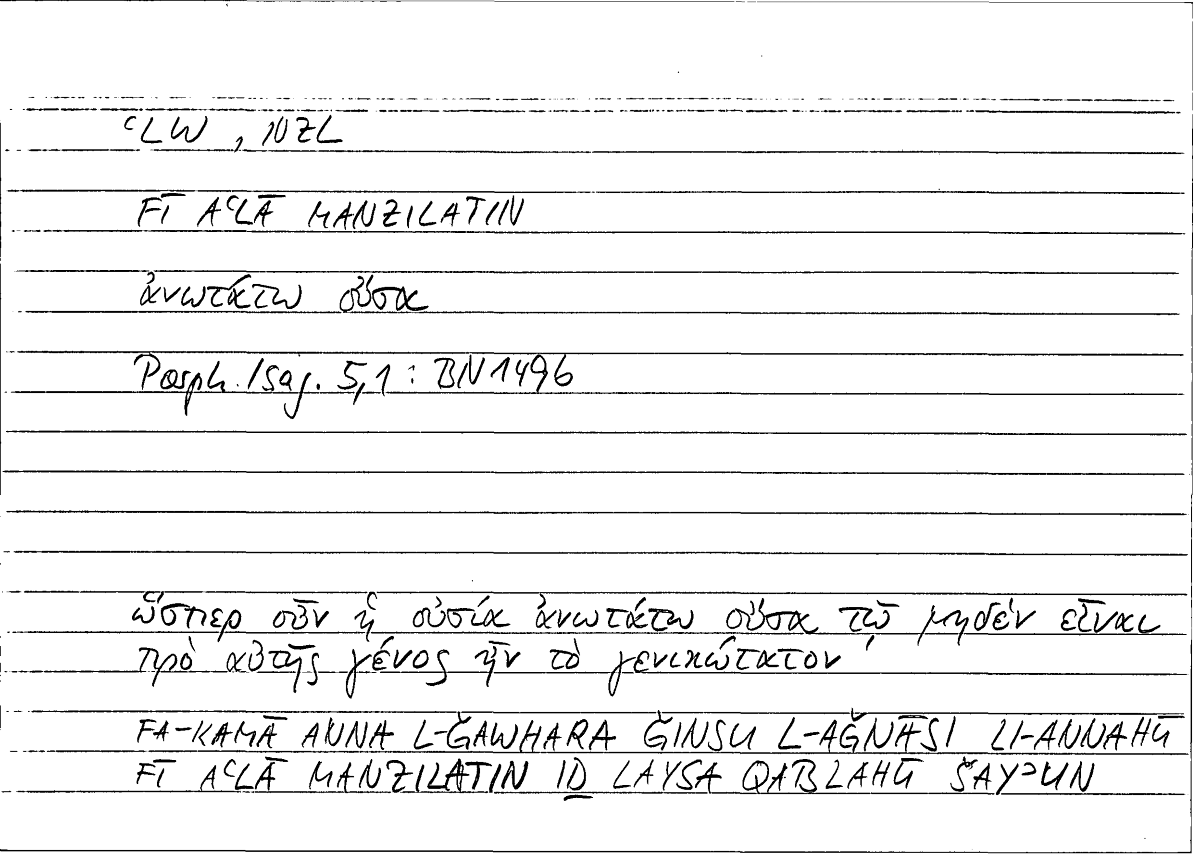 ʿLW, NZL
FĪ AʿLĀ MANZILATIN
ἀνωτάτω οὖσα
Porph. Isag. 5,1 : BN 149b
ὥσπερ οὖν ἡ οὐσία ἀνωτάτω οὖσα τῷ μηδὲν εἶναι
πρὸ αὐτῆς γένος ἦν τὸ γενικώτατον
FA-KAMĀ ANNA L-ǦAWHARA ǦINSU L-AǦNĀSI LI-ANNAHŪ
FĪ AʿLĀ MANZILATIN IḎ LAYSA QABLAHŪ ŠAYʾUN